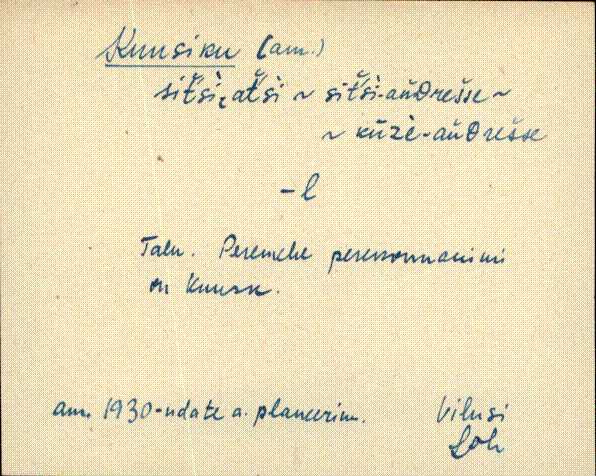 Kuusiku (am.)
sit̆śi, at̆śi ~ sit̆śi-aǹDrešše ~
~ kūzè-aǹDrešše
-l
Talu. Peremehe perekonnanimi
on Kuusk.
am. 1930-ndate a. planeerim.
Vilusi
Loh